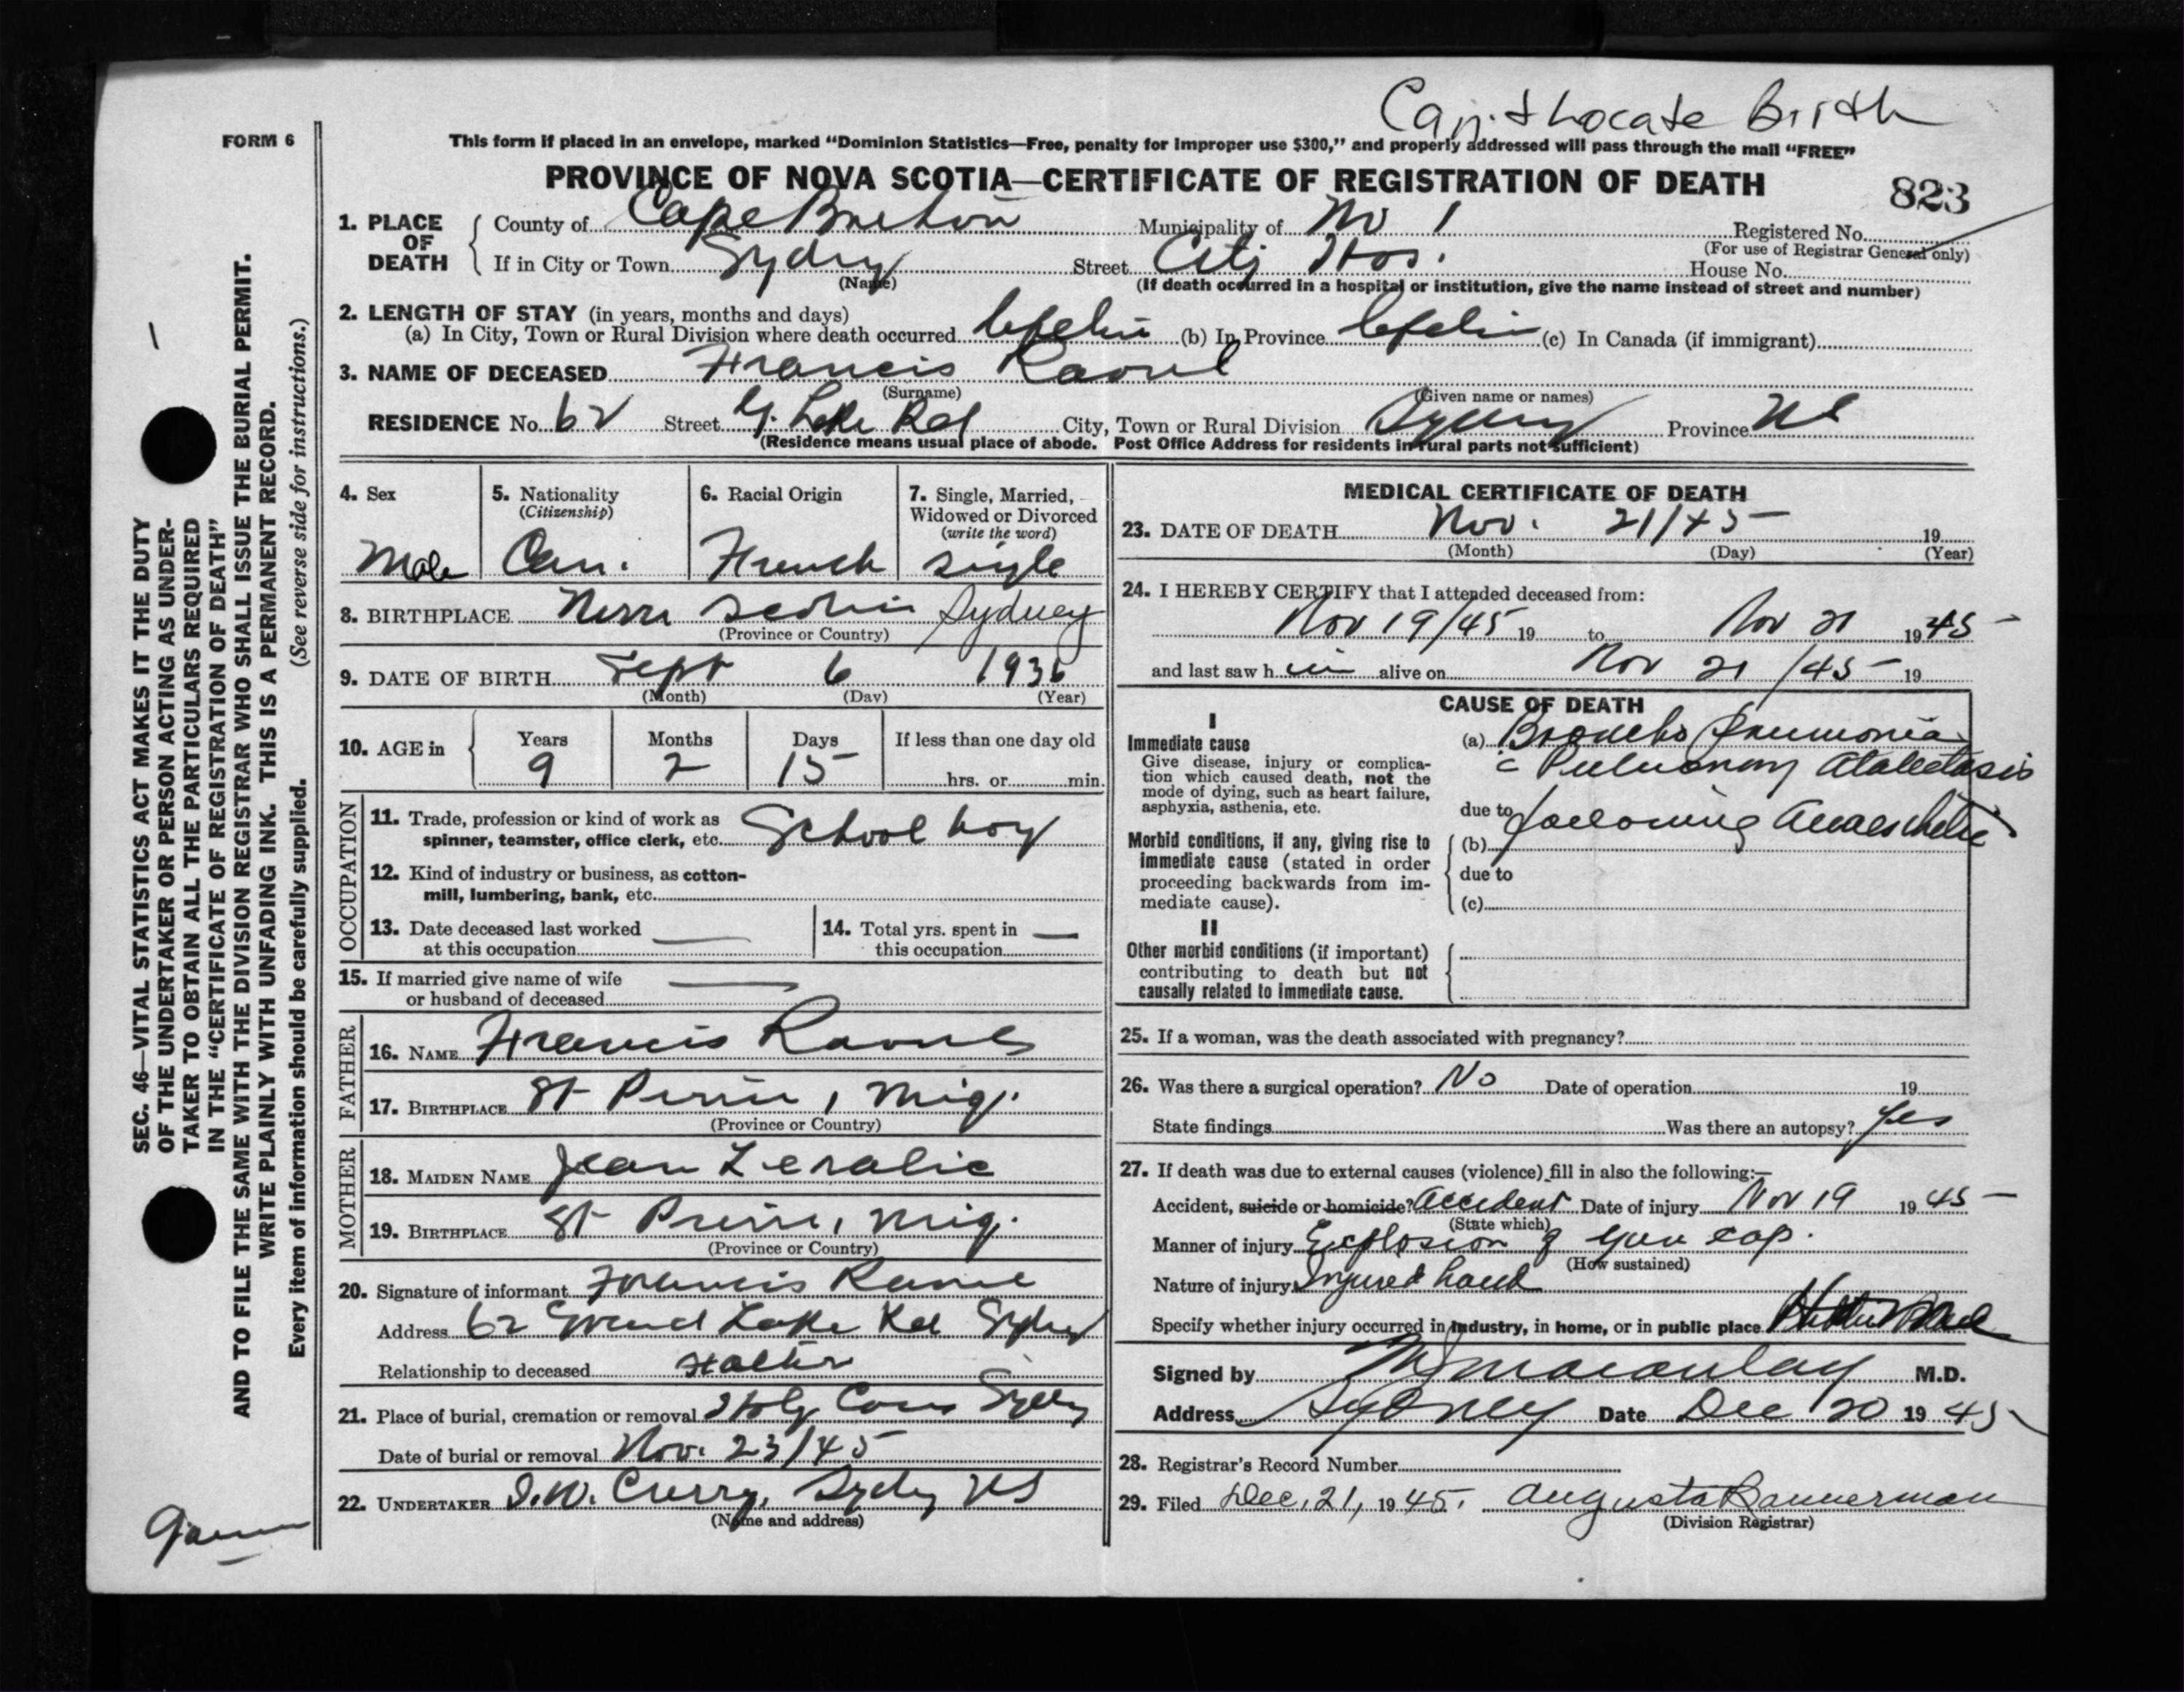 Can't Locate Birth
FORM 6
This form if placed in an envelope, marked "Dominion Statistics—Free, penalty for improper use $300," and properly addressed will pass through the mail "FREE"
PROVINCE OF NOVA SCOTIA—CERTIFICATE OF REGISTRATION OF DEATH
823
1. PLACE OF DEATH
County of Cape Breton Municipality of No 1 Registered No.
(For use of Registrar General only)
If in City or Town Sydney Street City Hos. House No.
(Name) (If death occurred in a hospital or institution, give the name instead of street and number)
2. LENGTH OF STAY (in years, months and days)
(a) In City, Town or Rural Division where death occurred (b) In Province (c) In Canada (if immigrant)
3. NAME OF DECEASED Francis Raoul
(Surname) (Given name or names)
RESIDENCE No. 62 Street G. Lake Rd City, Town or Rural Division Sydney Province NS
(Residence means usual place of abode. Post Office Address for residents in rural parts not sufficient)
4. Sex
Male
5. Nationality
(Citizenship)
Can.
6. Racial Origin
French
7. Single, Married, Widowed or Divorced
(write the word)
Single
8. BIRTHPLACE Nova Scotia Sydney
(Province or Country)
9. DATE OF BIRTH Sept 6 1936
(Month) (Day) (Year)
10. AGE in Years Months Days If less than one day old
9 2 15 hrs. or min.
OCCUPATION
11. Trade, profession or kind of work as
spinner, teamster, office clerk, etc. School boy
12. Kind of industry or business, as cotton-
mill, lumbering, bank, etc.
13. Date deceased last worked
at this occupation —
14. Total yrs. spent in
this occupation —
15. If married give name of wife
or husband of deceased —
FATHER
16. NAME Francis Raoul
17. BIRTHPLACE St Pierre, Miq.
(Province or Country)
MOTHER
18. MAIDEN NAME Jean
19. BIRTHPLACE St Pierre, Miq.
(Province or Country)
20. Signature of informant Francis Raoul
Address 62 Grand Lake Rd Sydney
Relationship to deceased Father
21. Place of burial, cremation or removal Holy Cross Sydney
Date of burial or removal Nov. 23/45
22. UNDERTAKER Curry, Sydney NS
(Name and address)
MEDICAL CERTIFICATE OF DEATH
23. DATE OF DEATH Nov. 21/45 19
(Month) (Day) (Year)
24. I HEREBY CERTIFY that I attended deceased from:
Nov 19/45 19 to Nov 21 1945
and last saw h im alive on Nov 21/45 19
CAUSE OF DEATH
I
Immediate cause
Give disease, injury or complica-
tion which caused death, not the
mode of dying, such as heart failure,
asphyxia, asthenia, etc.
(a) Broncho Pneumonia
c Pulmonary Atalectasis
due to following Anaesthetic
Morbid conditions, if any, giving rise to
immediate cause (stated in order
proceeding backwards from im-
mediate cause).
(b)
due to
(c)
II
Other morbid conditions (if important)
contributing to death but not
causally related to immediate cause.
25. If a woman, was the death associated with pregnancy?
26. Was there a surgical operation? No Date of operation 19
State findings Was there an autopsy? Yes
27. If death was due to external causes (violence) fill in also the following:—
Accident, suicide or homicide? Accident Date of injury Nov 19 1945
(State which)
Manner of injury Explosion of gun cap.
(How sustained)
Nature of injury Injured hand
Specify whether injury occurred in industry, in home, or in public place
Signed by Macaulay M.D.
Address Sydney Date Dec 20 1945
28. Registrar's Record Number
29. Filed Dec. 21, 1945. Augusta Bannerman
(Division Registrar)
SEC. 46—VITAL STATISTICS ACT MAKES IT THE DUTY
OF THE UNDERTAKER OR PERSON ACTING AS UNDER-
TAKER TO OBTAIN ALL THE PARTICULARS REQUIRED
IN THE "CERTIFICATE OF REGISTRATION OF DEATH"
AND TO FILE THE SAME WITH THE DIVISION REGISTRAR WHO SHALL ISSUE THE BURIAL PERMIT.
WRITE PLAINLY WITH UNFADING INK. THIS IS A PERMANENT RECORD.
Every item of information should be carefully supplied. (See reverse side for instructions.)